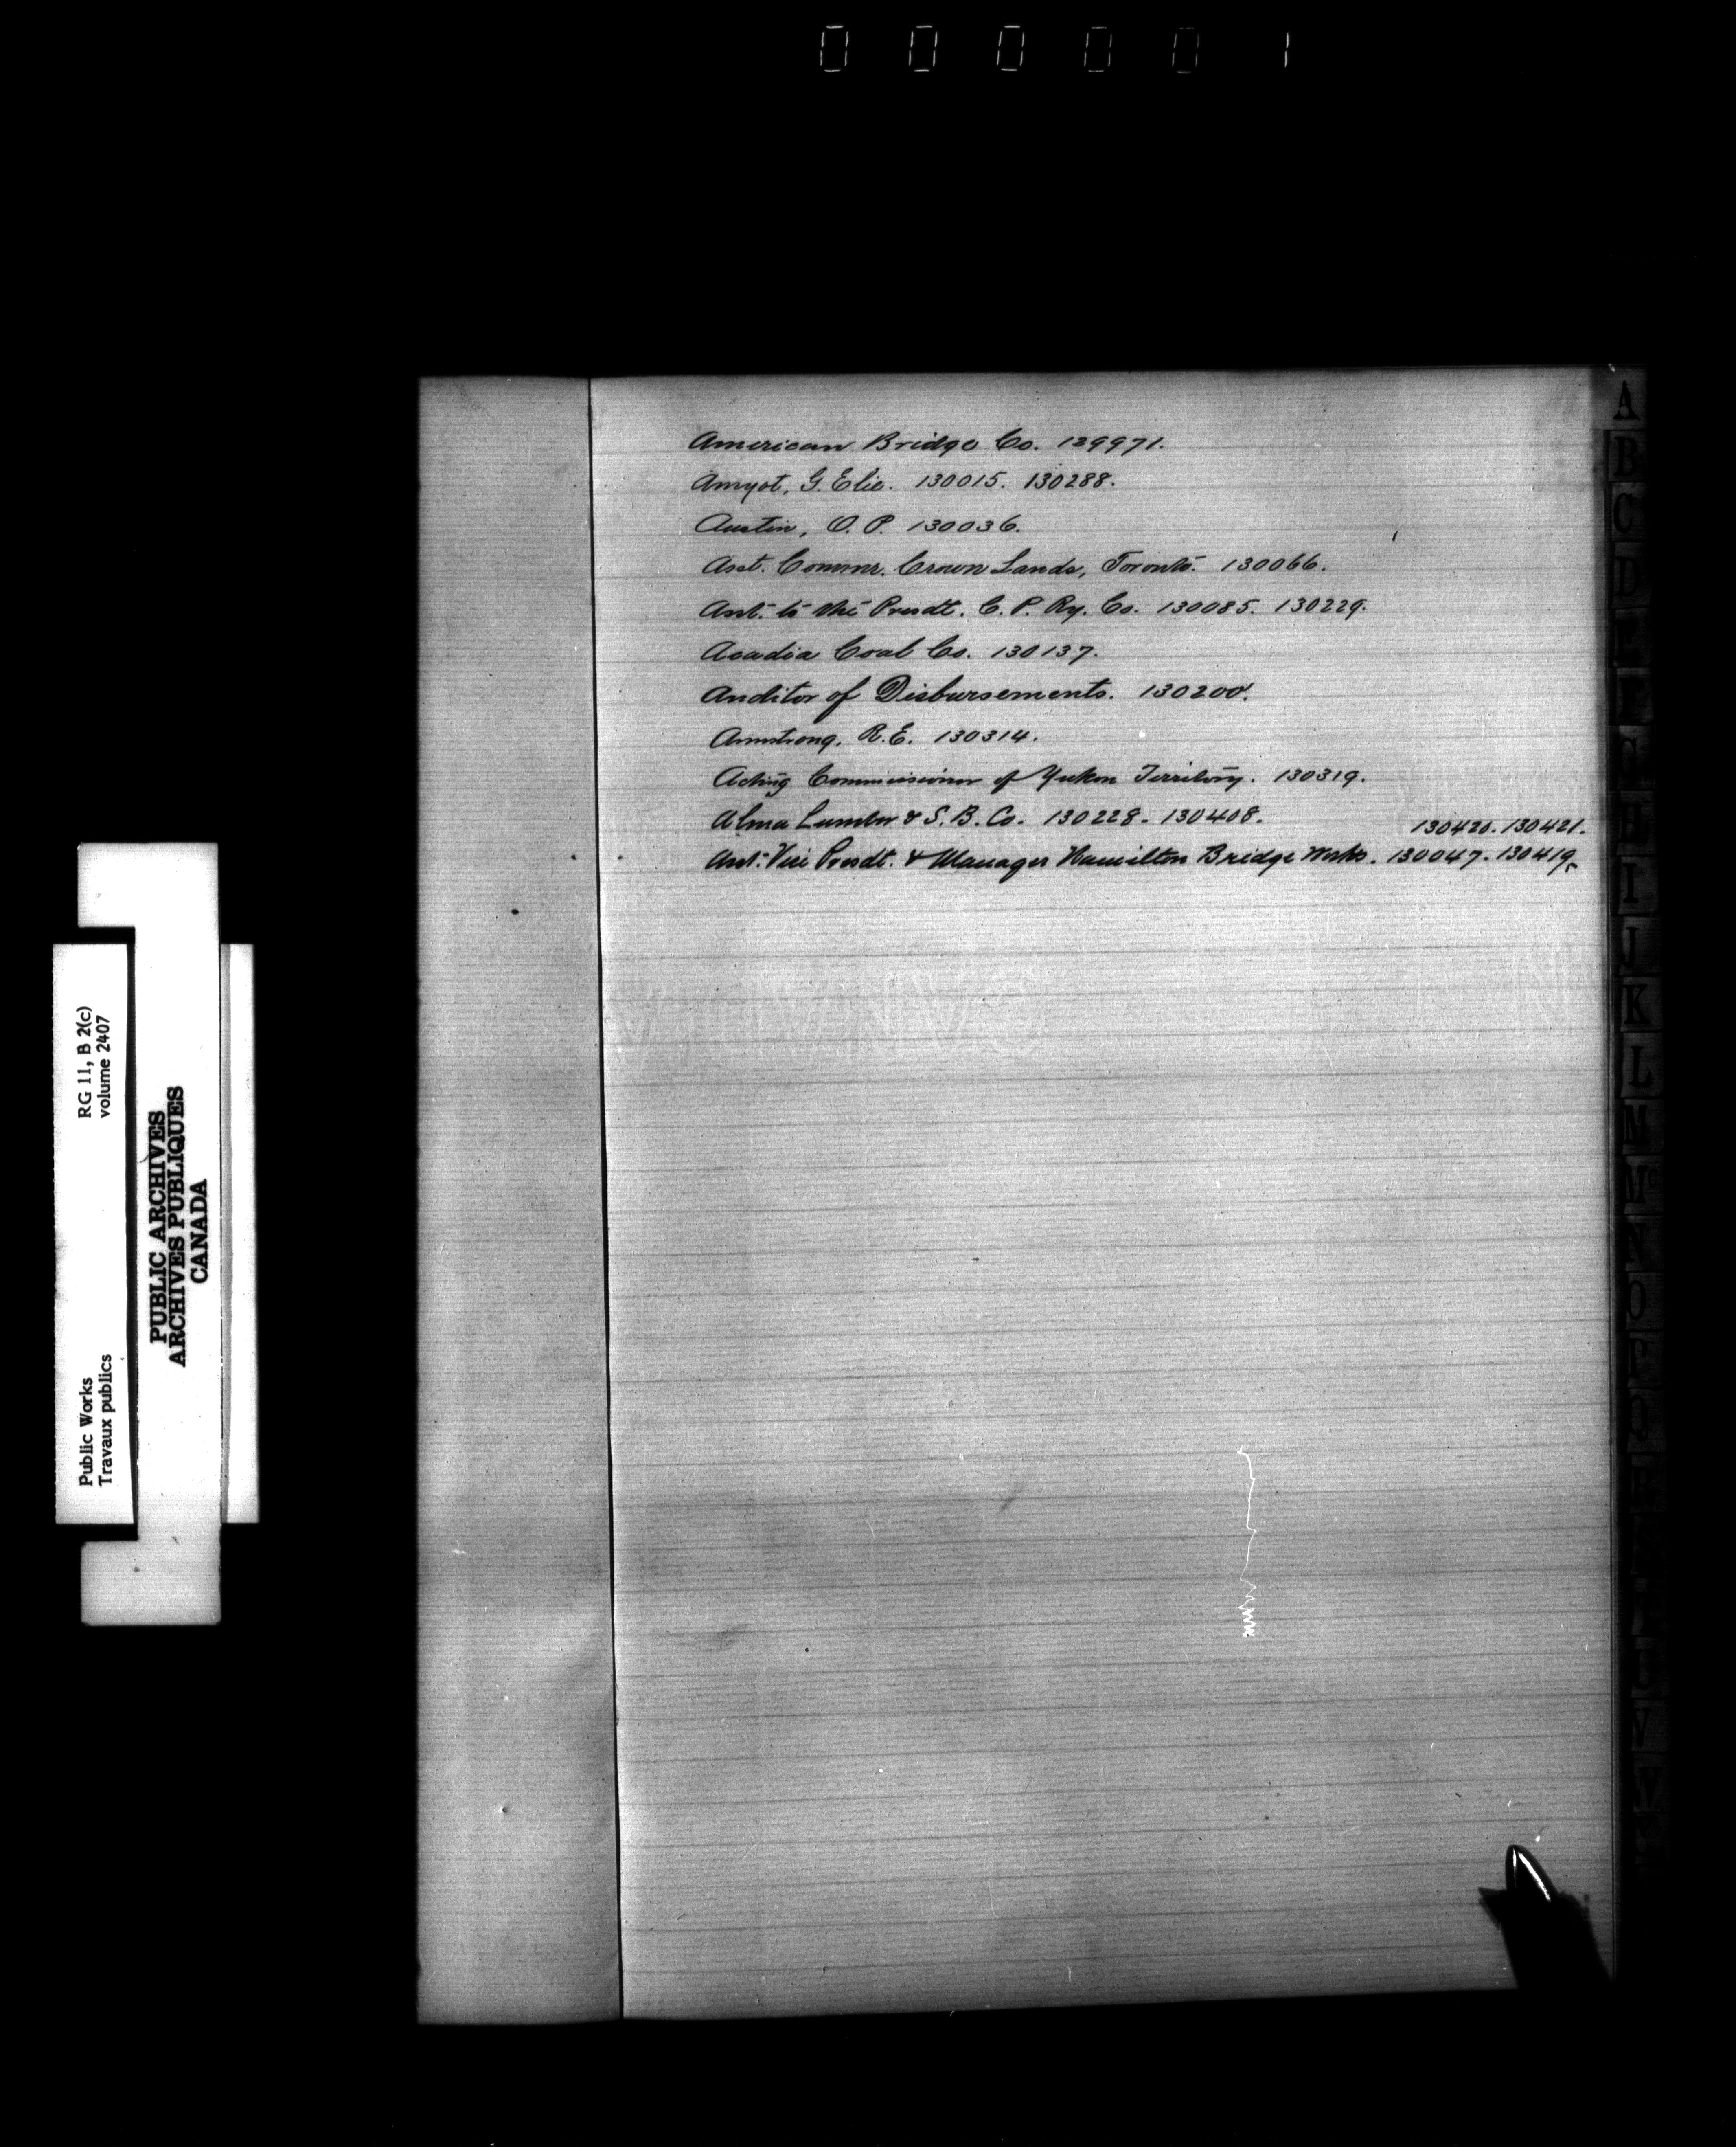 000001
American Bridge Co. 129971.
Amyot, G. Elie. 130015. 130288.
Austin, O. P. 130036.
Asst. Commr. Crown Lands, Toronto. 130066.
Asst. to the Presdt. C. P. Ry. Co. 130085. 130229.
Acadia Coal Co. 130137.
Auditor of Disbursements. 130200.
Armstrong, R. E. 130314.
Acting Commissioner of Yukon Territory. 130319.
Alma Lumber & S. B. Co. 130228. 130408.
130420. 130421.
Asst. Vice Presdt. & Manager Hamilton Bridge Works. 130047. 130419.
A
B
C
D
H
I
J
K
L
M
Mc
N
O
P
Q
U
V
RG 11, B 2(c)
volume 2407
Public Works
Travaux publics
PUBLIC ARCHIVES
ARCHIVES PUBLIQUES
CANADA